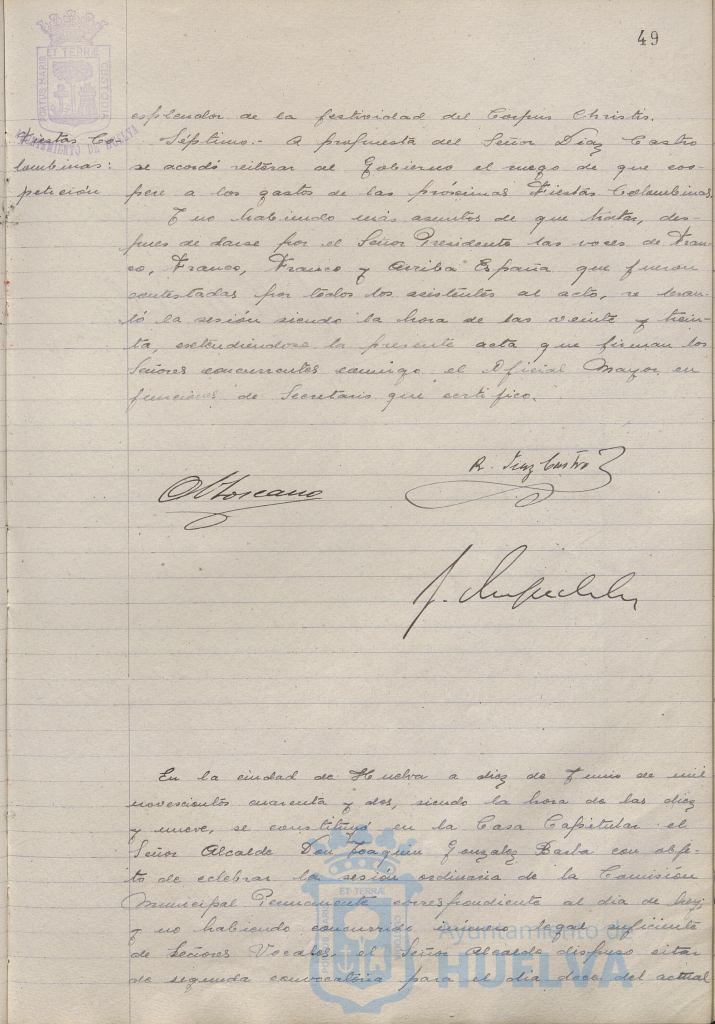 49
PORTUS MARIS ET TERRÆ CUSTODIA
AYUNTAMIENTO DE HUELVA
Fiestas Co
lombinas:
petición
esplendor de la festividad del Corpus Christi.
Séptimo.- A propuesta del Señor Díaz Castro
se acordó reiterar al Gobierno el ruego de que coo
pere a los gastos de las próximas Fiestas Colombinas.
Y no habiendo más asuntos de que tratar, des-
pues de darse por el Señor Presidente las voces de Fran-
co, Franco, Franco y Arriba España que fueron
contestadas por todos los asistentes al acto, se levan-
tó la sesión siendo la hora de las veinte y trein-
ta, extendiéndose la presente acta que firman los
Señores concurrentes conmigo el Oficial Mayor en
funciones de Secretario que certifico.
R. Díaz Castro
Toscano
En la ciudad de Huelva a diez de Junio de mil
novescientos cuarenta y dos, siendo la hora de las diez
y nueve, se constituyó en la Casa Capitular el
Señor Alcalde Don Joaquin Gonzalez Barba con obje-
to de celebrar la sesión ordinaria de la Comisión
Municipal Permanente correspondiente al día de hoy;
y no habiendo concurrido número legal suficiente
de Señores Vocales, el Señor Alcalde dispuso citar
de segunda convocatoria para el día doce del actual
ET TERRÆ
Ayuntamiento de
HUELVA